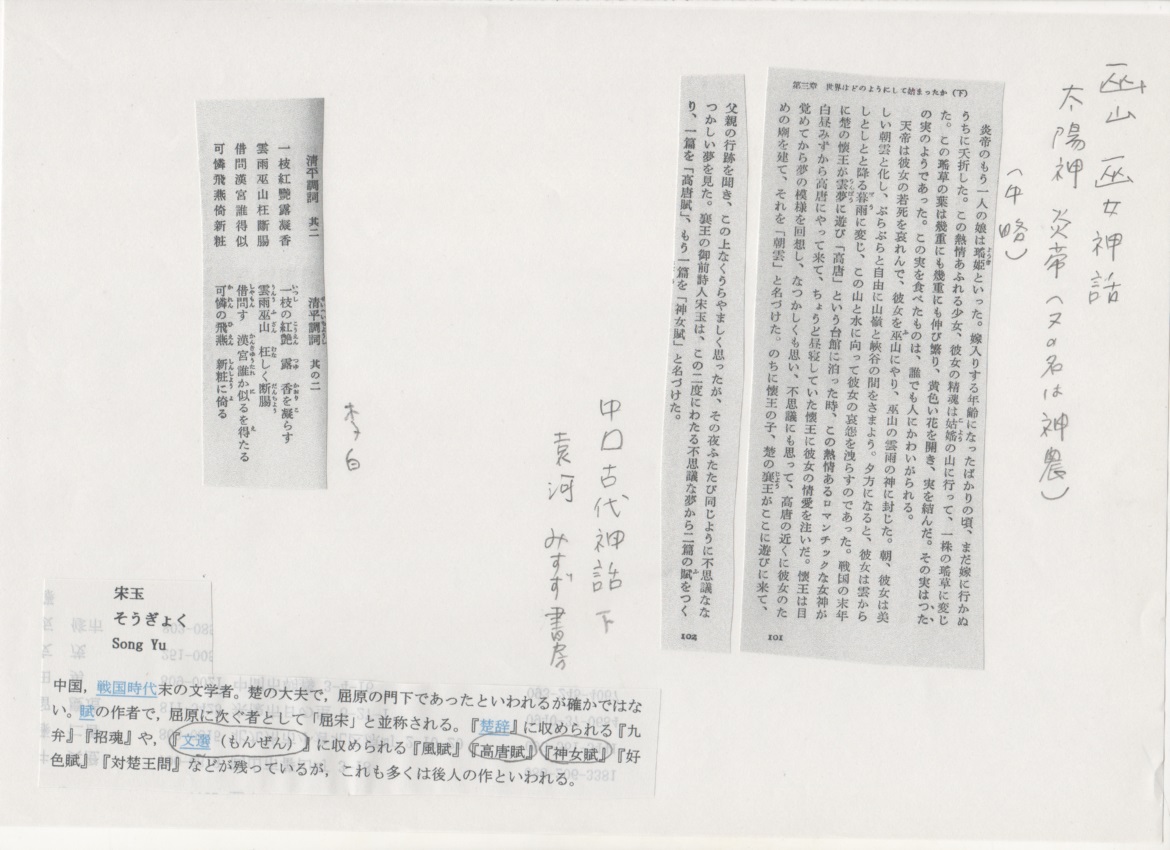 巫山 巫女神話
太陽神 炎帝(又の名は神農)
(中略)
第三章 世界はどのようにして始まったか(下)
炎帝のもう一人の娘は瑤姫といった。嫁入りする年齢になったばかりの頃、まだ嫁に行かぬ
うちに夭折した。この熱情あふれる少女、彼女の精魂は姑媱の山に行って、一株の瑤草に変じ
た。この瑤草の葉は幾重にも幾重にも伸び繁り、黄色い花を開き、実を結んだ。その実はつた
の実のようであった。この実を食べたものは、誰でも人にかわいがられる。
天帝は彼女の若死を哀れんで、彼女を巫山にやり、巫山の雲雨の神に封じた。朝、彼女は美
しい朝雲と化し、ぶらぶらと自由に山嶺と峡谷の間をさまよう。夕方になると、彼女は雲から
しとしとと降る暮雨に変じ、この山と水に向って彼女の哀怨を洩らすのであった。戦国の末年
に楚の懐王が雲夢に遊び「高唐」という台館に泊った時、この熱情あるロマンチックな女神が
白昼みずから高唐にやって来て、ちょうど昼寝していた懐王に彼女の情愛を注いだ。懐王は目
覚めてから夢の模様を回想し、なつかしくも思い、不思議にも思って、高唐の近くに彼女のた
めの廟を建て、それを「朝雲」と名づけた。のちに懐王の子、楚の襄王がここに遊びに来て、
101
父親の行跡を聞き、この上なくうらやましく思ったが、その夜ふたたび同じように不思議なな
つかしい夢を見た。襄王の御前詩人宋玉は、この二度にわたる不思議な夢から二篇の賦をつく
り、一篇を「高唐賦」、もう一篇を「神女賦」と名づけた。
102
中国古代神話 下
袁珂 みすず書房
李白
清平調詞 其二
一枝紅艷露凝香
雲雨巫山枉斷腸
借問漢宮誰得似
可憐飛燕倚新粧
清平調詞 其の二
一枝の紅艷 露 香を凝らす
雲雨巫山 枉しく断腸
借問す 漢宮誰か似るを得たる
可憐の飛燕 新粧に倚る
宋玉
そうぎょく
Song Yu
中国,戦国時代末の文学者。楚の大夫で,屈原の門下であったといわれるが確かではな
い。賦の作者で,屈原に次ぐ者として「屈宋」と並称される。『楚辞』に収められる『九
弁』『招魂』や,『文選(もんぜん)』に収められる『風賦』『高唐賦』『神女賦』『好
色賦』『対楚王問』などが残っているが,これも多くは後人の作といわれる。